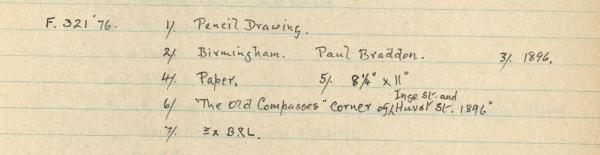 F. 321 '76. 1/. Pencil Drawing.
2/. Birmingham. Paul Braddon. 3/. 1896.
4/. Paper. 5/. 8¼" x 11"
6/ "The Old Compasses" Corner of Inge St. and Hurst St. 1896"
7/. Ex BRL.